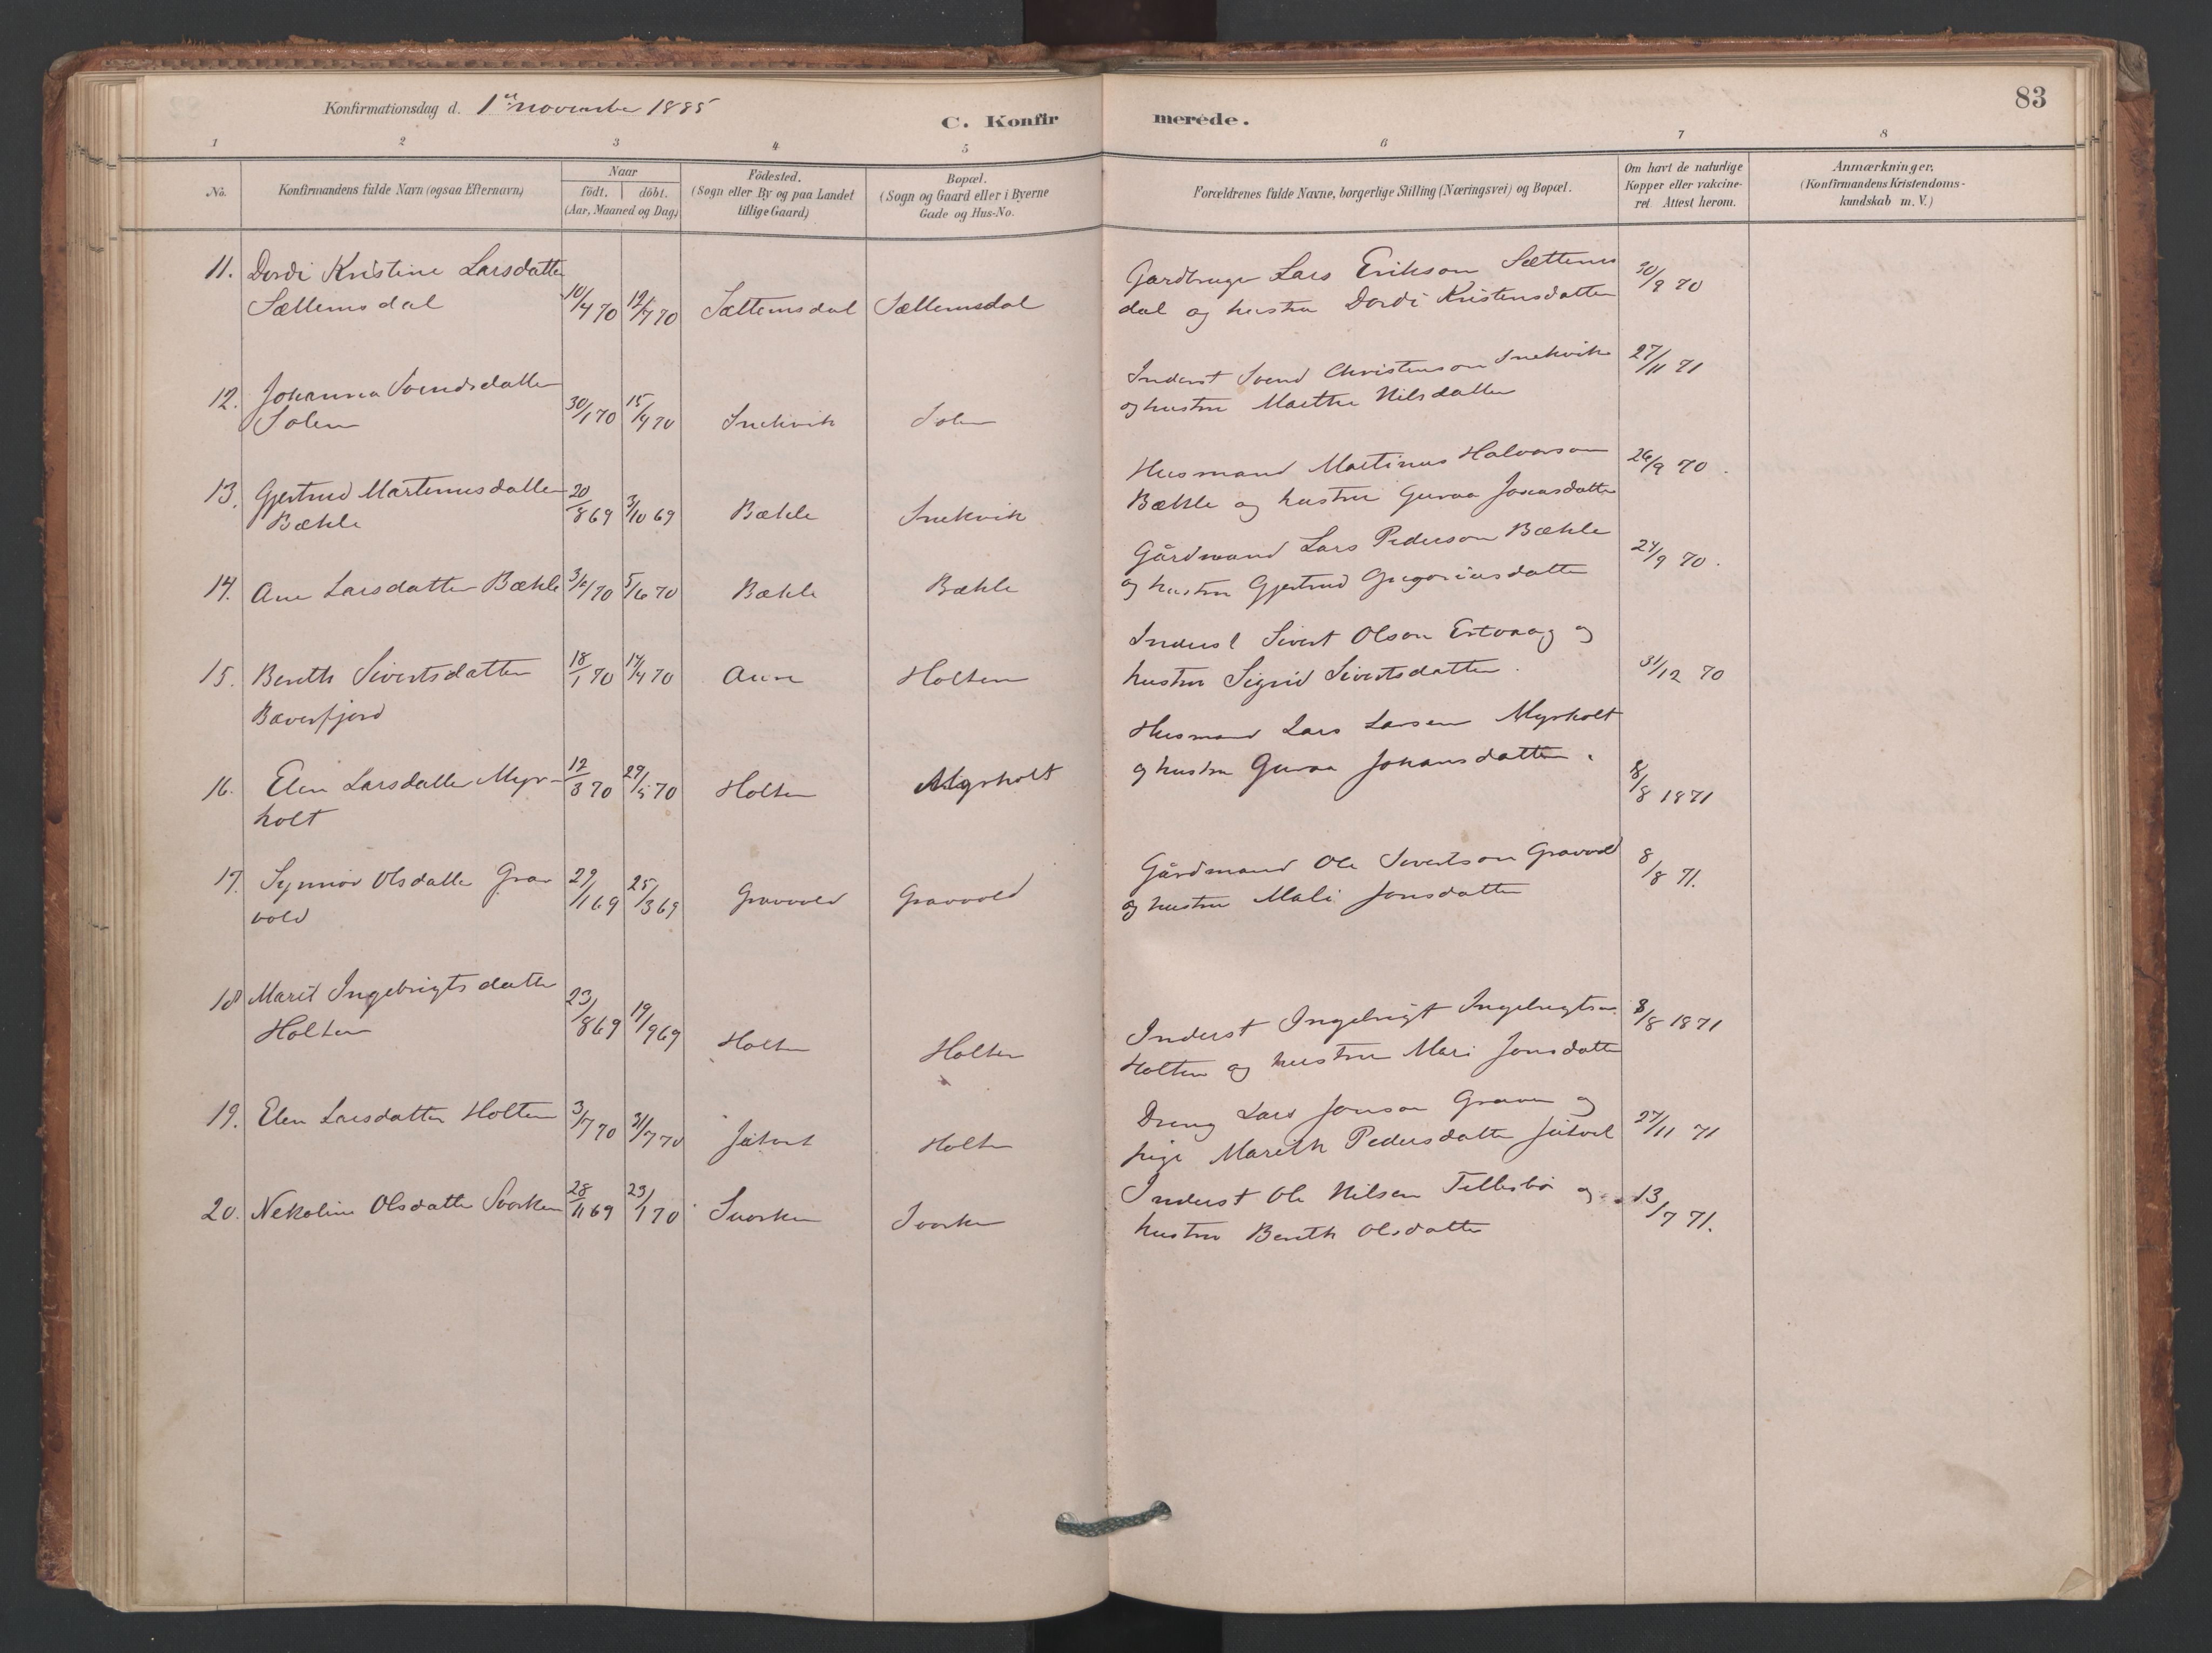 83
Konfirmationsdag d. 1ste november 1885
C. Konfirmerede.
1 2 3 4 5 6 7 8
No.
Konfirmandens fulde Navn (ogsaa Efternavn)
Naar
födt. döbt.
(Aar, Maaned og Dag)
Födested.
(Sogn eller By og paa Landet
tillige Gaard)
Bopæl.
(Sogn og Gaard eller i Byerne
Gade og Hus-No.
Forældrenes fulde Navne, borgerlige Stilling (Næringsvei) og Bopæl.
Om havt de naturlige
Kopper eller vakcine-
ret Attest herom.
Anmærkninger.
(Konfirmandens Kristendoms-
kundskab m. V.)
11. Dordi Kristine Larsdatter
Sættemsdal
10/4 70 12/7 70 Sættemsdal Sættemsdal
Gardbruger Lars Erikson Sættems
dal og hustru Dordi Kristensdatter
30/9 70
12. Johanna Svendsdatter
Solem
30/1 70 15/4 70 Snekvik Solem
Inderst Svend Christenson Snekvik
og hustru Marthe Nilsdatter
27/11 71
13. Gjertrud Martinusdatter
Bække
20/8 69 3/10 69 Bække Snekvik
Husmand Martinus Halvorson
Bække og hustru Guroa Jonasdatter
26/9 70.
14. Ane Larsdatter Bække
5/6 70 Bække Bække
Gårdmand Lars Pederson Bække
og hustru Gjertrud Gregoriusdatter
24/9 70.
15. Bereth Sivertsdatter
Bæverfjord
18/1 70 17/4 70 Aure Holten
Inderst Sivert Olson Ertvaag og
hustru Sigrid Sivertsdatter.
31/12 70
16. Elen Larsdatter Myr-
holt
12/3 70 29/5 70 Holten Myrholt
Husmand Lars Larsen Myrholt
og hustru Guroa Johansdatter.
8/8 1871
17. Synnøv Olsdatter Gra
vold
29/1 69 25/3 69 Gravvold Gravvold
Gårdmand Ole Sivertson Gravvold
og hustru Mali Jonsdatter
8/8 71.
18 Marit Ingebrigtsdatter
Holten
23/8 69 19/9 69 Holten Holten
Inderst Ingebrigt Ingebrigtsen
Holten og hustru Mari Jonsdatter
8/8 1871
19. Elen Larsdatter Holten
3/7 70 31/7 70 Holten
Dreng Lars Jonson Graven og
pige Mareth Pedersdatter
27/11 71
20. Nekoline Olsdatter Svorken
28/11 69 23/1 70 Svorken Svorken
Inderst Ole Nilsen Tellesbø og
hustru Bereth Olsdatter
13/7 71.